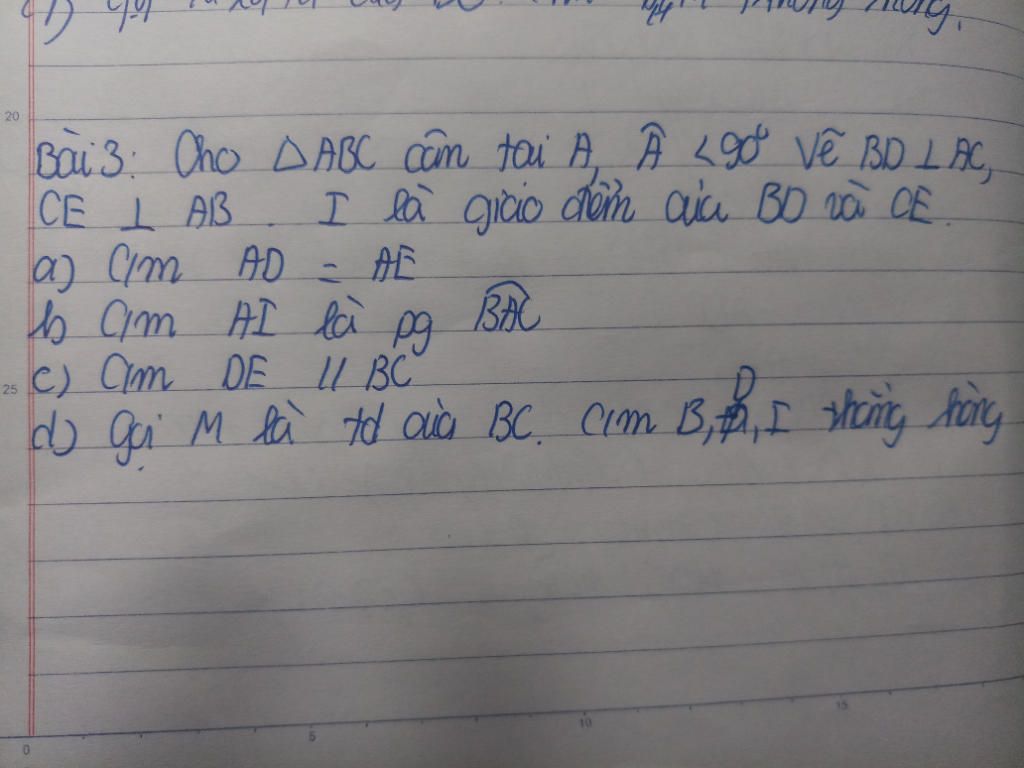 Bài 3: Cho △ABC cân tại A, Â < 90° Vẽ BD ⊥ AC,
CE ⊥ AB. I là giao điểm của BD và CE.
a) C/m AD = AE
b) C/m AI là pg BAC
c) C/m DE // BC
d) Gọi M là td của BC. C/m B, D, I thẳng hàng
20
25
0 5 10 15